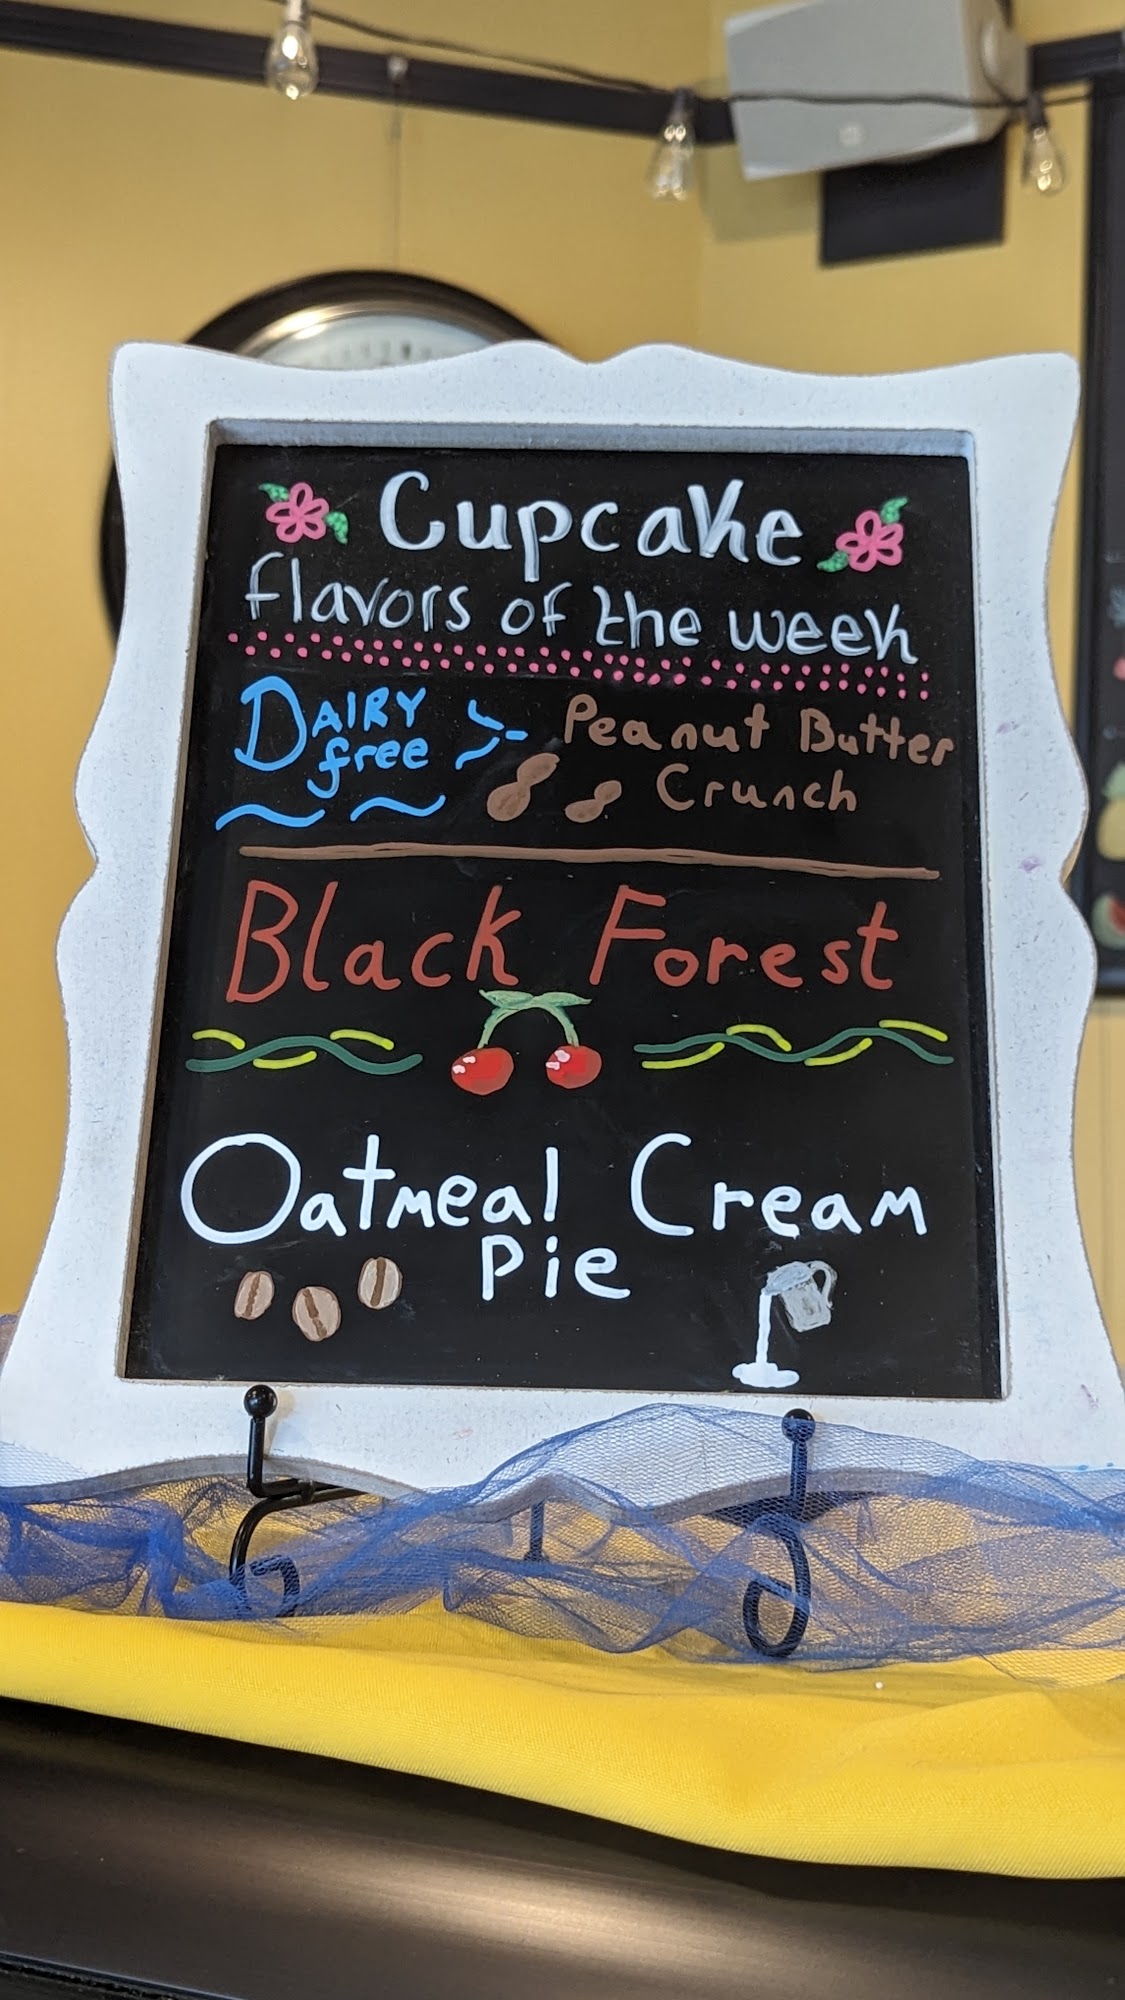 Cupcake
flavors of the week
DAIRY free >- Peanut Butter
Crunch
Black Forest
Oatmeal Cream
Pie